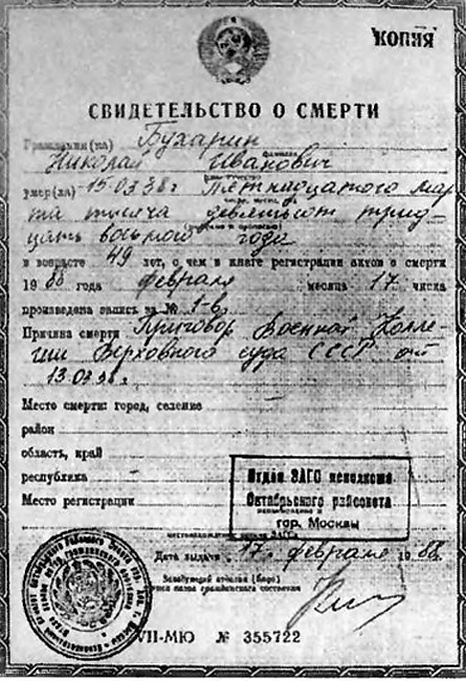 КОПИЯ
СВИДЕТЕЛЬСТВО О СМЕРТИ
Гражданин(ка) Бухарин
Николай Иванович
умер(ла) 15.03.38 г. Пятнадцатого мар
та тысяча девятьсот трид
цать восьмого года
в возрасте 49 лет, о чем в книге регистрации актов о смерти
1988 года февраля месяца 17 числа
произведена запись за № 1-в
Причина смерти Приговор Военной Колле
гии Верховного суда СССР от
13.03.38 г
Место смерти: город, селение
район
область, край
республика
Место регистрации
Отдел ЗАГС исполкома
Октябрьского райсовета
гор. Москвы
Дата выдачи 17 февраля 1988
Заведующий отделом (бюро)
записи актов гражданского состояния
VII-МЮ № 355722